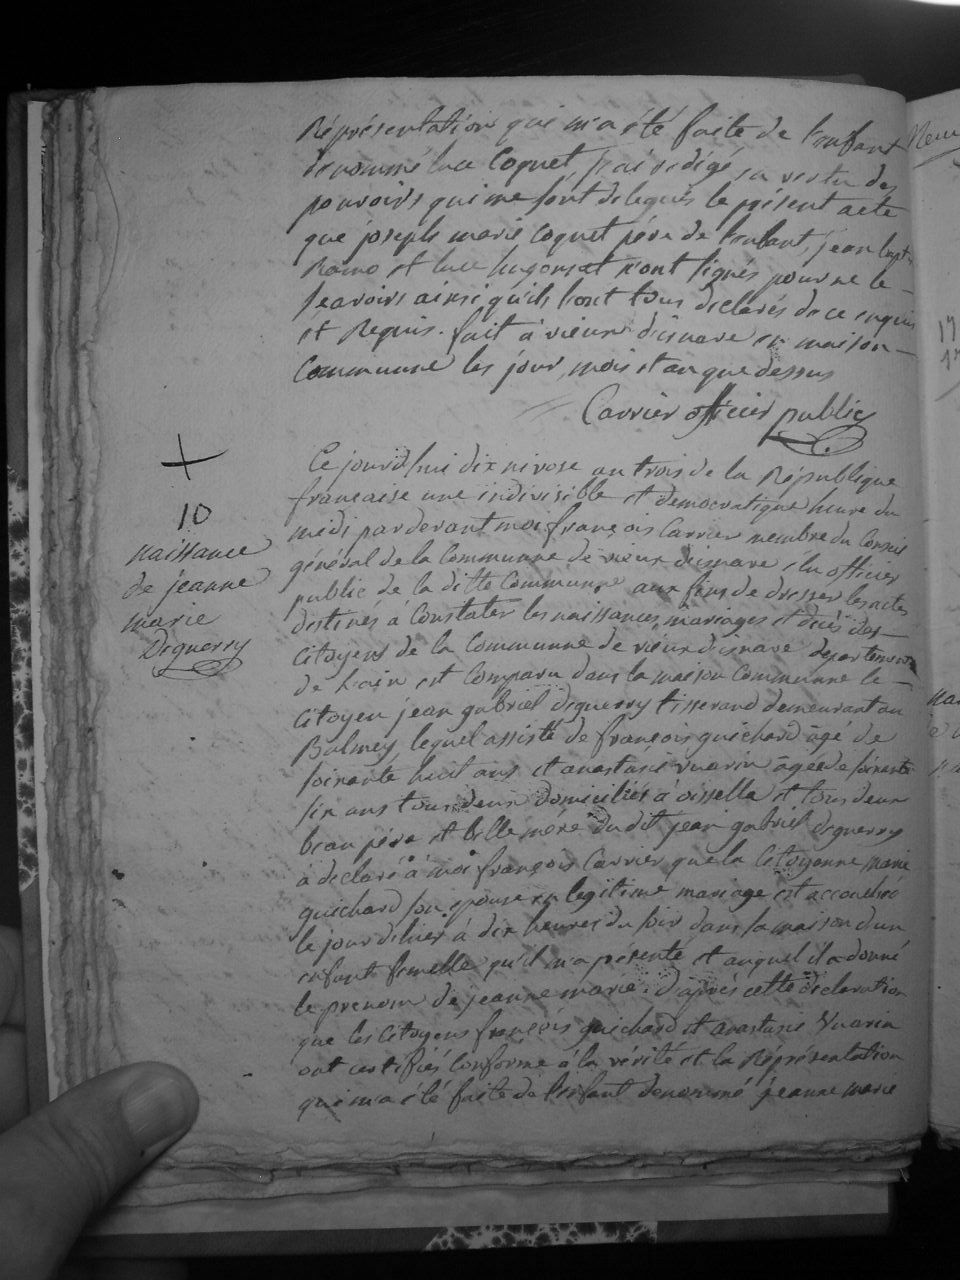 Représentation qui m'a été faite de l'enfant
denommé luc Coquet j'ai rédigé en vertu des
pouvoirs qui me sont delegués le présent acte
que joseph marie Coquet père de l'enfant, jean bapt.
Ramo et luce hugonnet n'ont signés pour ne le
scavoirs ainsi qu'ils l'ont tous declarés de ce enquis
et Requis. fait à vieux disnave en maison
Communne les jour, mois et an que dessus
Carrier officier public
+
10
naissance
de jeanne
marie
Deguerry
Ce jourd'hui dix nivose an trois de la République
francaise une indivisible et democratique heure du
midi par devant moi françois Carrier membre du Conseil
général de la Communne de vieux disnave élu officier
public de la ditte Communne aux fins de dresser les actes
destinés à Constater les naissances, mariages et décès des
Citoyens de la Communne de vieux disnave departement
de L'ain est Comparu dans la maison Communne le
Citoyen jean gabriel deguerry tisserand demeurant au
Balmey, lequel assisté de françois guichard âgé de
soixante huit ans et anastasie vuarin âgée de soixante
six ans tous deux domiciliés à oisselle et tous deux
beau père et belle mère du dit jean gabriel deguerry
à declaré à moi françois Carrier que la Citoyenne marie
guichard son epouse en legitime mariage est accouchée
le jour d'hier à dix heures du soir dans sa maison d'un
enfant femelle qu'il m'a présenté et auquel il a donné
le prenom de jeanne marie. d'après cette declaration
que les Citoyens françois guichard et anastasie Vuarin
ont certifiés Conforme à la vérité et la Représentation
qui m'a été faite de l'enfant denommé jeanne marie